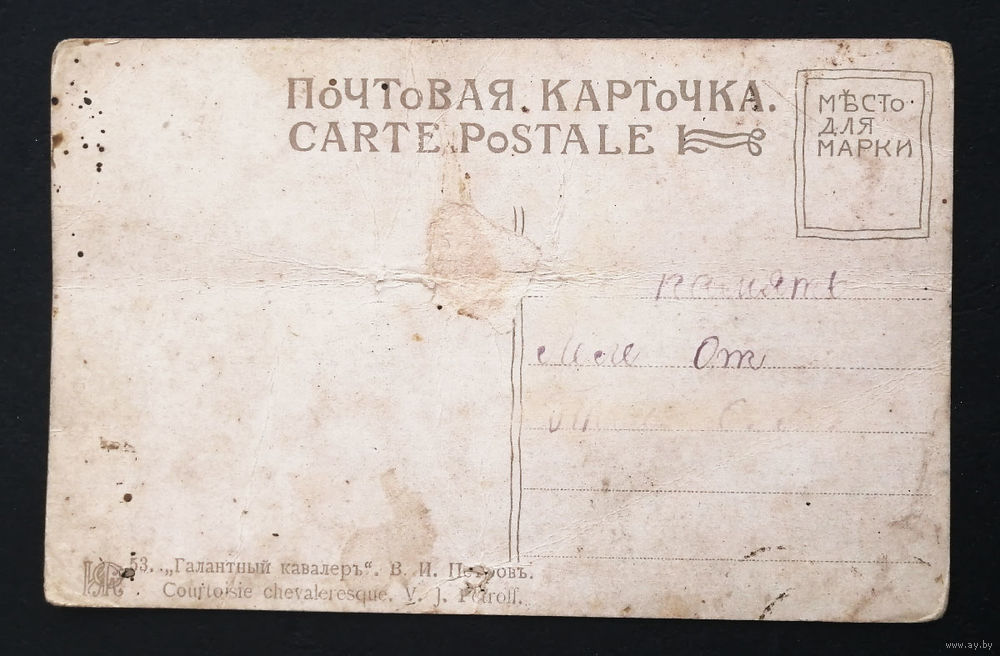 ПОЧТОВАЯ КАРТОЧКА.
CARTE POSTALE
МѢСТО
ДЛЯ
МАРКИ
память
От
53. „Галантный кавалеръ“. В. И. Петровъ.
Courtoisie chevaleresque. V. J. Petroff.
www.ay.by